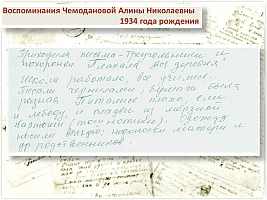 Воспоминания Чемодановой Алины Николаевны
1934 года рождения
Приходили письма-треугольники и
похоронки. Плакала вся деревня.
Школа работала, все учились.
Писали чернилами, бумага была
разная. Питались плохо, ели
и лебеду, и оладьи из мёрзлой
картошки (тошнотики). Одежду
носили ветхую, обноски матери и
др. родственников.